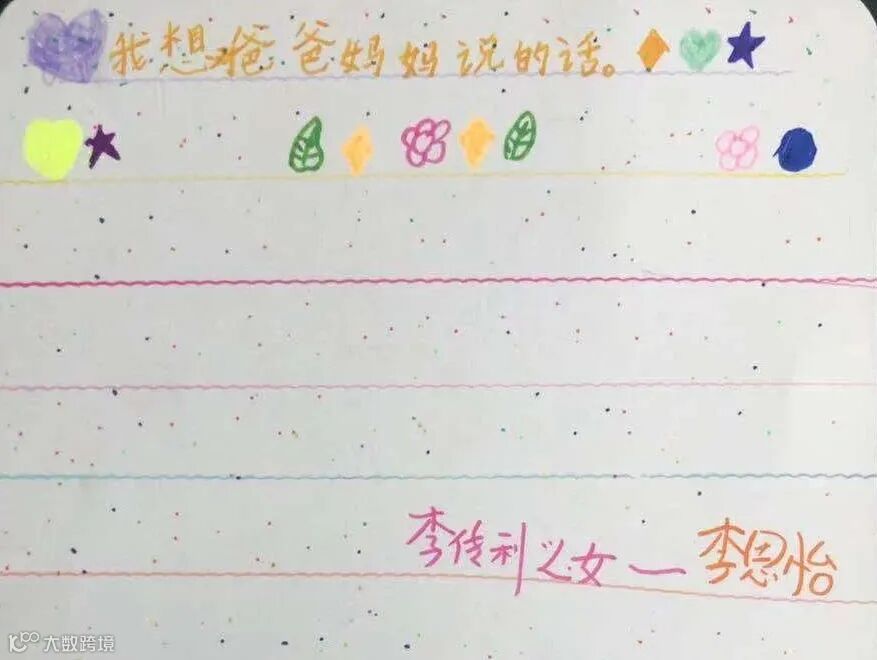 我想对爸爸妈妈说的话。
李传利之女—李恩怡
大数跨境